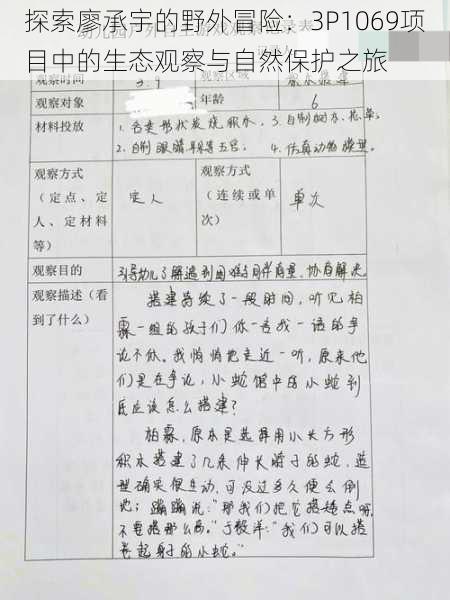 探索廖承宇的野外冒险：3P1069项
目中的生态观察与自然保护之旅
观察时间 3.9 观察区域
观察对象 年龄 6
材料投放 1.各类形状炭烧积木、3.自制树木、花草、
2.自制眼睛等五官、 4.仿真动物模型。
观察方式
（定点、定
人、定材料
等）
定人
观察方式
（连续或单
次）
单次
观察目的 引导幼儿了解遇到困难与同伴商量、协商解决。
观察描述（看
到了什么）
搭建持续了一段时间，听见柏
霖一组的孩子们你一言我一语的争
论不休。我悄悄地走近一听，原来他
们是在争论，小蛇馆中的小蛇到
底应该怎么搭建？
柏霖，原本是选择用小长方形
积木搭建了几条伸长脖子的蛇，造
型确实很生动，可没过多久便会倒
地；蹦蹦说：“那我们把它搭矮点呀，
不要搭那么高。”于骏洋：“我们可以搭
卷起身子的小蛇。”